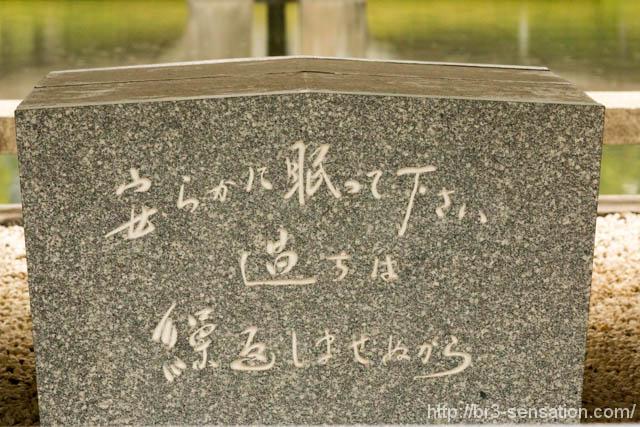 安らかに眠って下さい
過ちは
繰返しませぬから
http://br3-sensation.com/